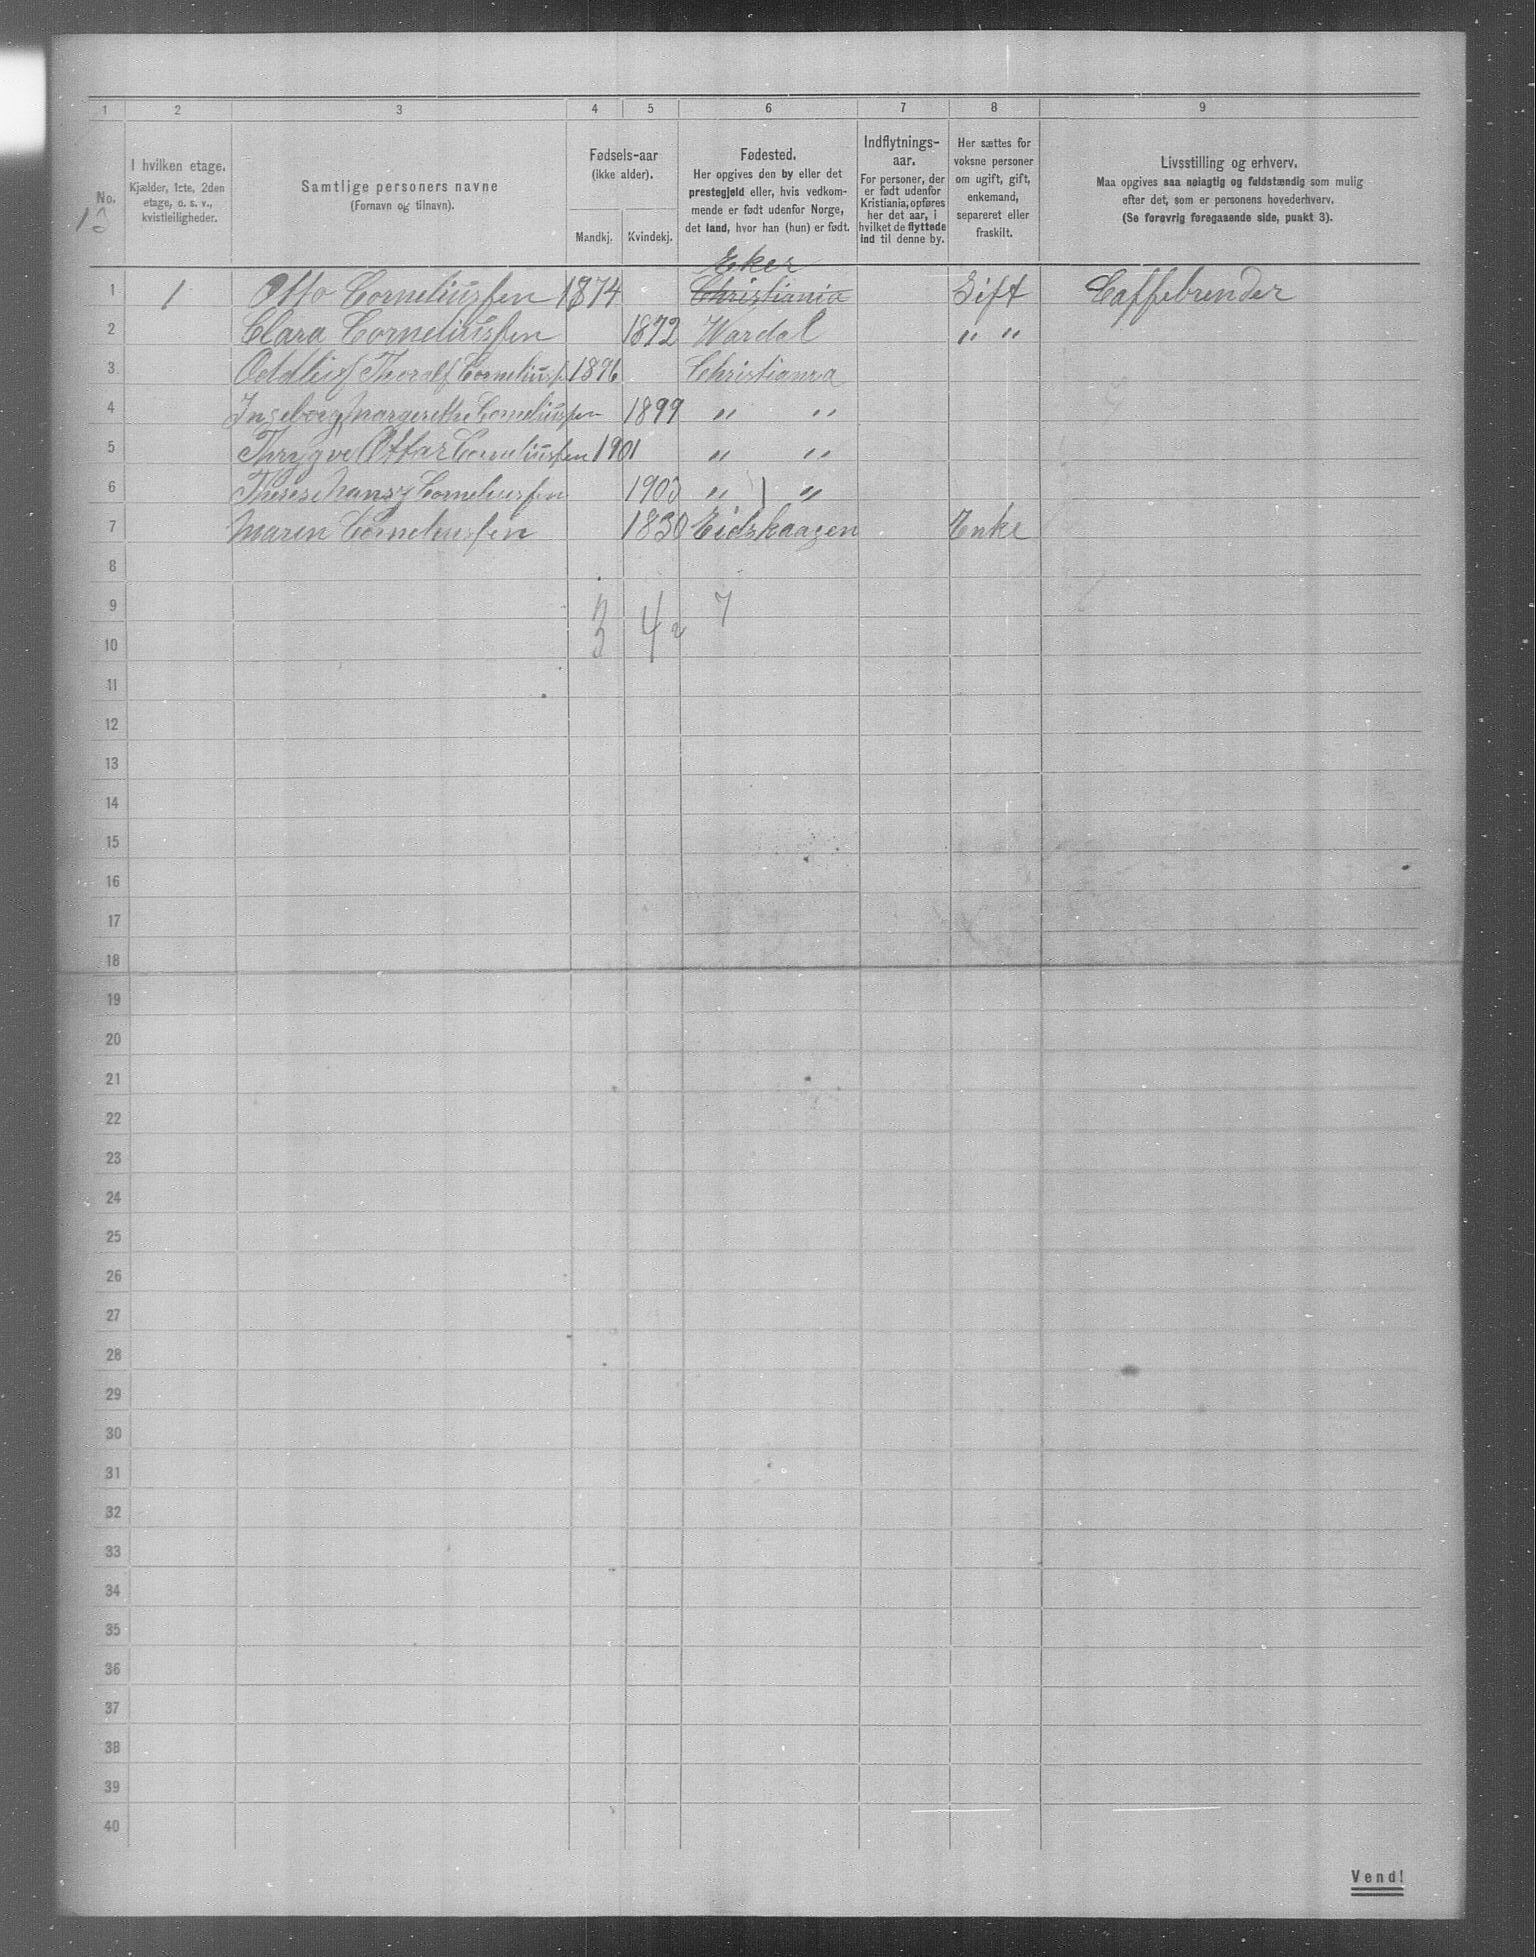 1 2 3 4 5 6 7 8 9
No. 13
I hvilken etage.
Kjælder, 1cte, 2den
etage, o. s. v.,
kvistleiligheder.
Samtlige personers navne
(Fornavn og tilnavn).
Fødsels-aar
(ikke alder).
Mandkj. Kvindekj.
Fødested.
Her opgives den by eller det
prestegjeld eller, hvis vedkom-
mende er født udenfor Norge,
det land, hvor han (hun) er født.
Indflytnings-
aar.
For personer, der
er født udenfor
Kristiania, opføres
her det aar, i
hvilket de flyttede
ind til denne by.
Her sættes for
voksne personer
om ugift, gift,
enkemand,
separeret eller
fraskilt.
Livsstilling og erhverv.
Maa opgives saa nøiagtig og fuldstændig som mulig
efter det, som er personens hovederhverv.
(Se forøvrig foregaaende side, punkt 3).
Eker
1 1 Otto Corneliussen 1874 Christiania Gift Caffebrender
2 Clara Corneliussen 1872 Wardal " "
3 Oddleif Thoralf Corneliuss 1896 Christiania
4 Ingeborg Margerethe Corneliussen 1899 " "
5 Thrygve Ottar Corneliussen 1901 " "
6 Corneliussen 1903 " "
7 Maren Corneliussen 1830 Eidskaagen Enke
8
9
3 4 7
10
11
12
13
14
15
16
17
18
19
20
21
22
23
24
25
26
27
28
29
30
31
32
33
34
35
36
37
38
39
40
Vend!